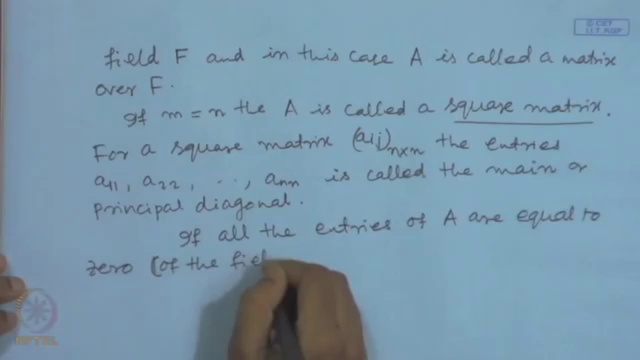 © CET
I.I.T. KGP
field F and in this case A is called a matrix
over F.
If m = n the A is called a square matrix.
For a square matrix (aij)n×n the entries
a11, a22, .., ann is called the main or
principal diagonal.
If all the entries of A are equal to
zero (of the fiel
NPTEL